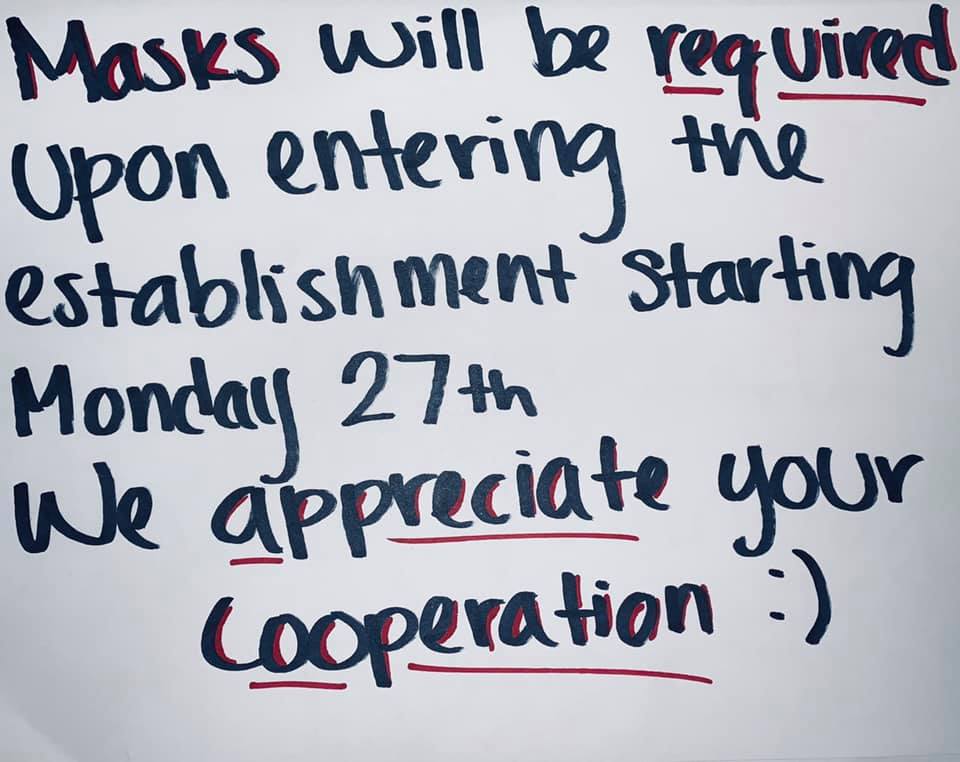 Masks will be required
Upon entering the
establishment starting
Monday 27th
We appreciate your
Cooperation :)